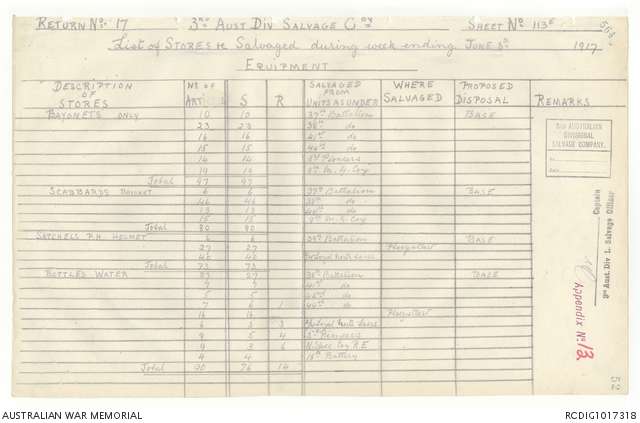 RETURN No. 17 3RD AUST DIV SALVAGE COY SHEET No. 113E
List of STORES &c Salvaged during week ending JUNE 8th 1917
EQUIPMENT
DESCRIPTION OF STORES No OF ART S R SALVAGED FROM UNITS AS UNDER WHERE SALVAGED PROPOSED DISPOSAL REMARKS
BAYONETS ONLY 10 10 37th Battalion BASE
23 23 38th do
16 16 41st do
15 15 44th do
14 14 3rd Pioneers
19 19 9th M. G. Coy
Total 97 97
SCABBARDS BAYONET 6 6 37th Battalion BASE
46 46 38th do
13 13 44th do
15 15 9th M. G. Coy
Total 80 80
SATCHELS P.H. HELMET 6 6 39th Battalion BASE
27 27 Ploegsteert
40 40
Total 73 73
BOTTLES WATER 39th Battalion BASE
41st do
5 5 do
7 6 1 44th do
16 16 Ploegsteert
6 3 3
9 5 4 3rd Pioneers
9 3 6 Coy R.E
4 4 Battery
Total 90 76 14
3RD AUSTRALIAN
DIVISIONAL
SALVAGE COMPANY.
Captain
3rd Aust. Div l. Salvage Officer
Appendix No. 12
52
AUSTRALIAN WAR MEMORIAL RCDIG1017318